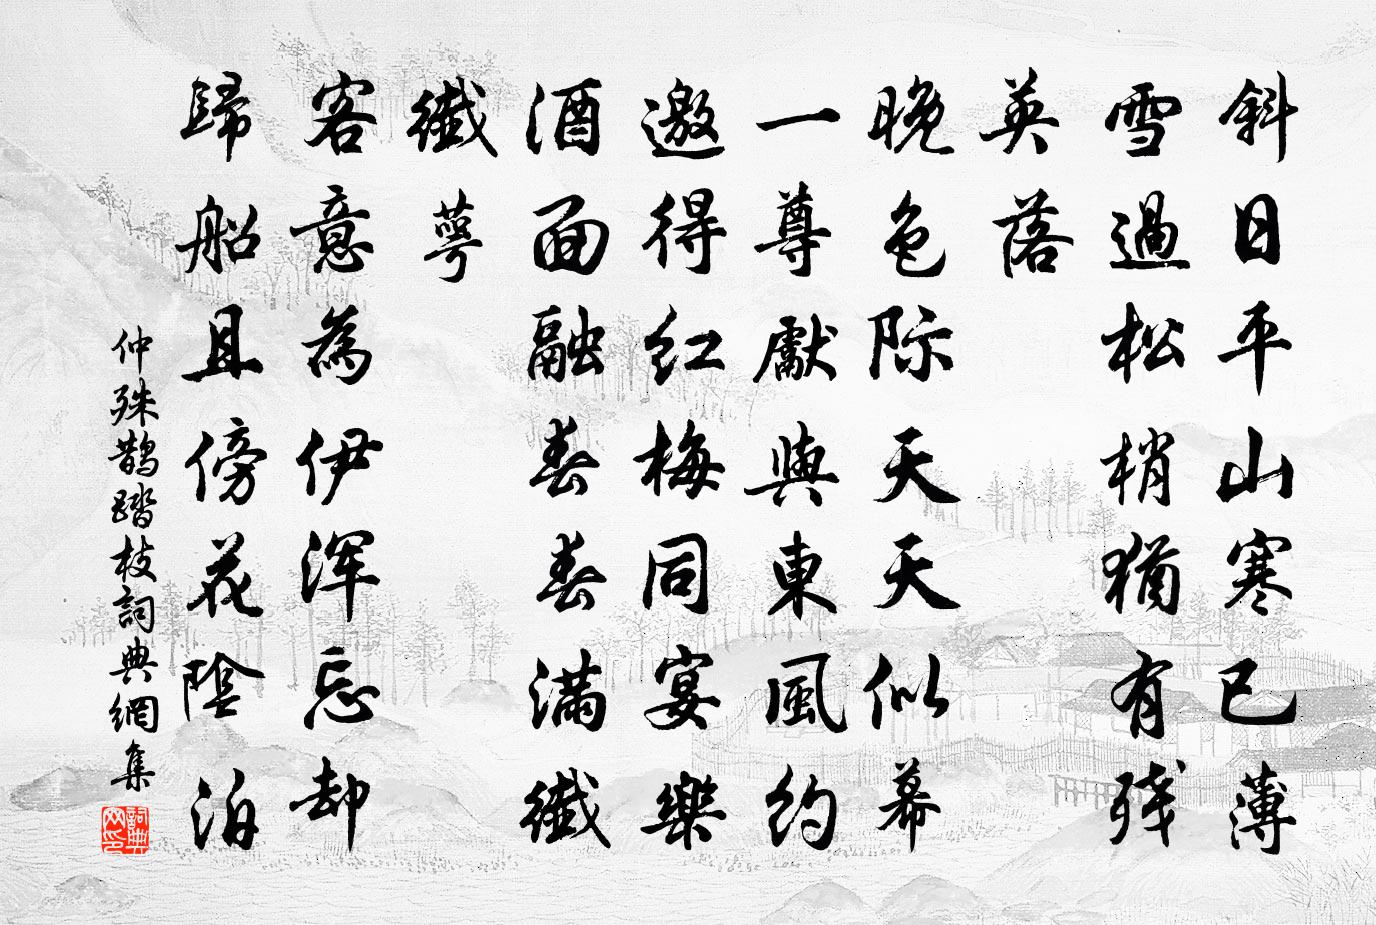 斜日平山寒已薄
雪過松梢猶有残
英落
晚色际天天似幕
一尊獻與東風約
邀得红梅同宴樂
酒面融春春滿纖
纖萼
客意為伊浑忘却
歸船且傍花陰泊
仲殊鹊踏枝詞典網集
詞典网印